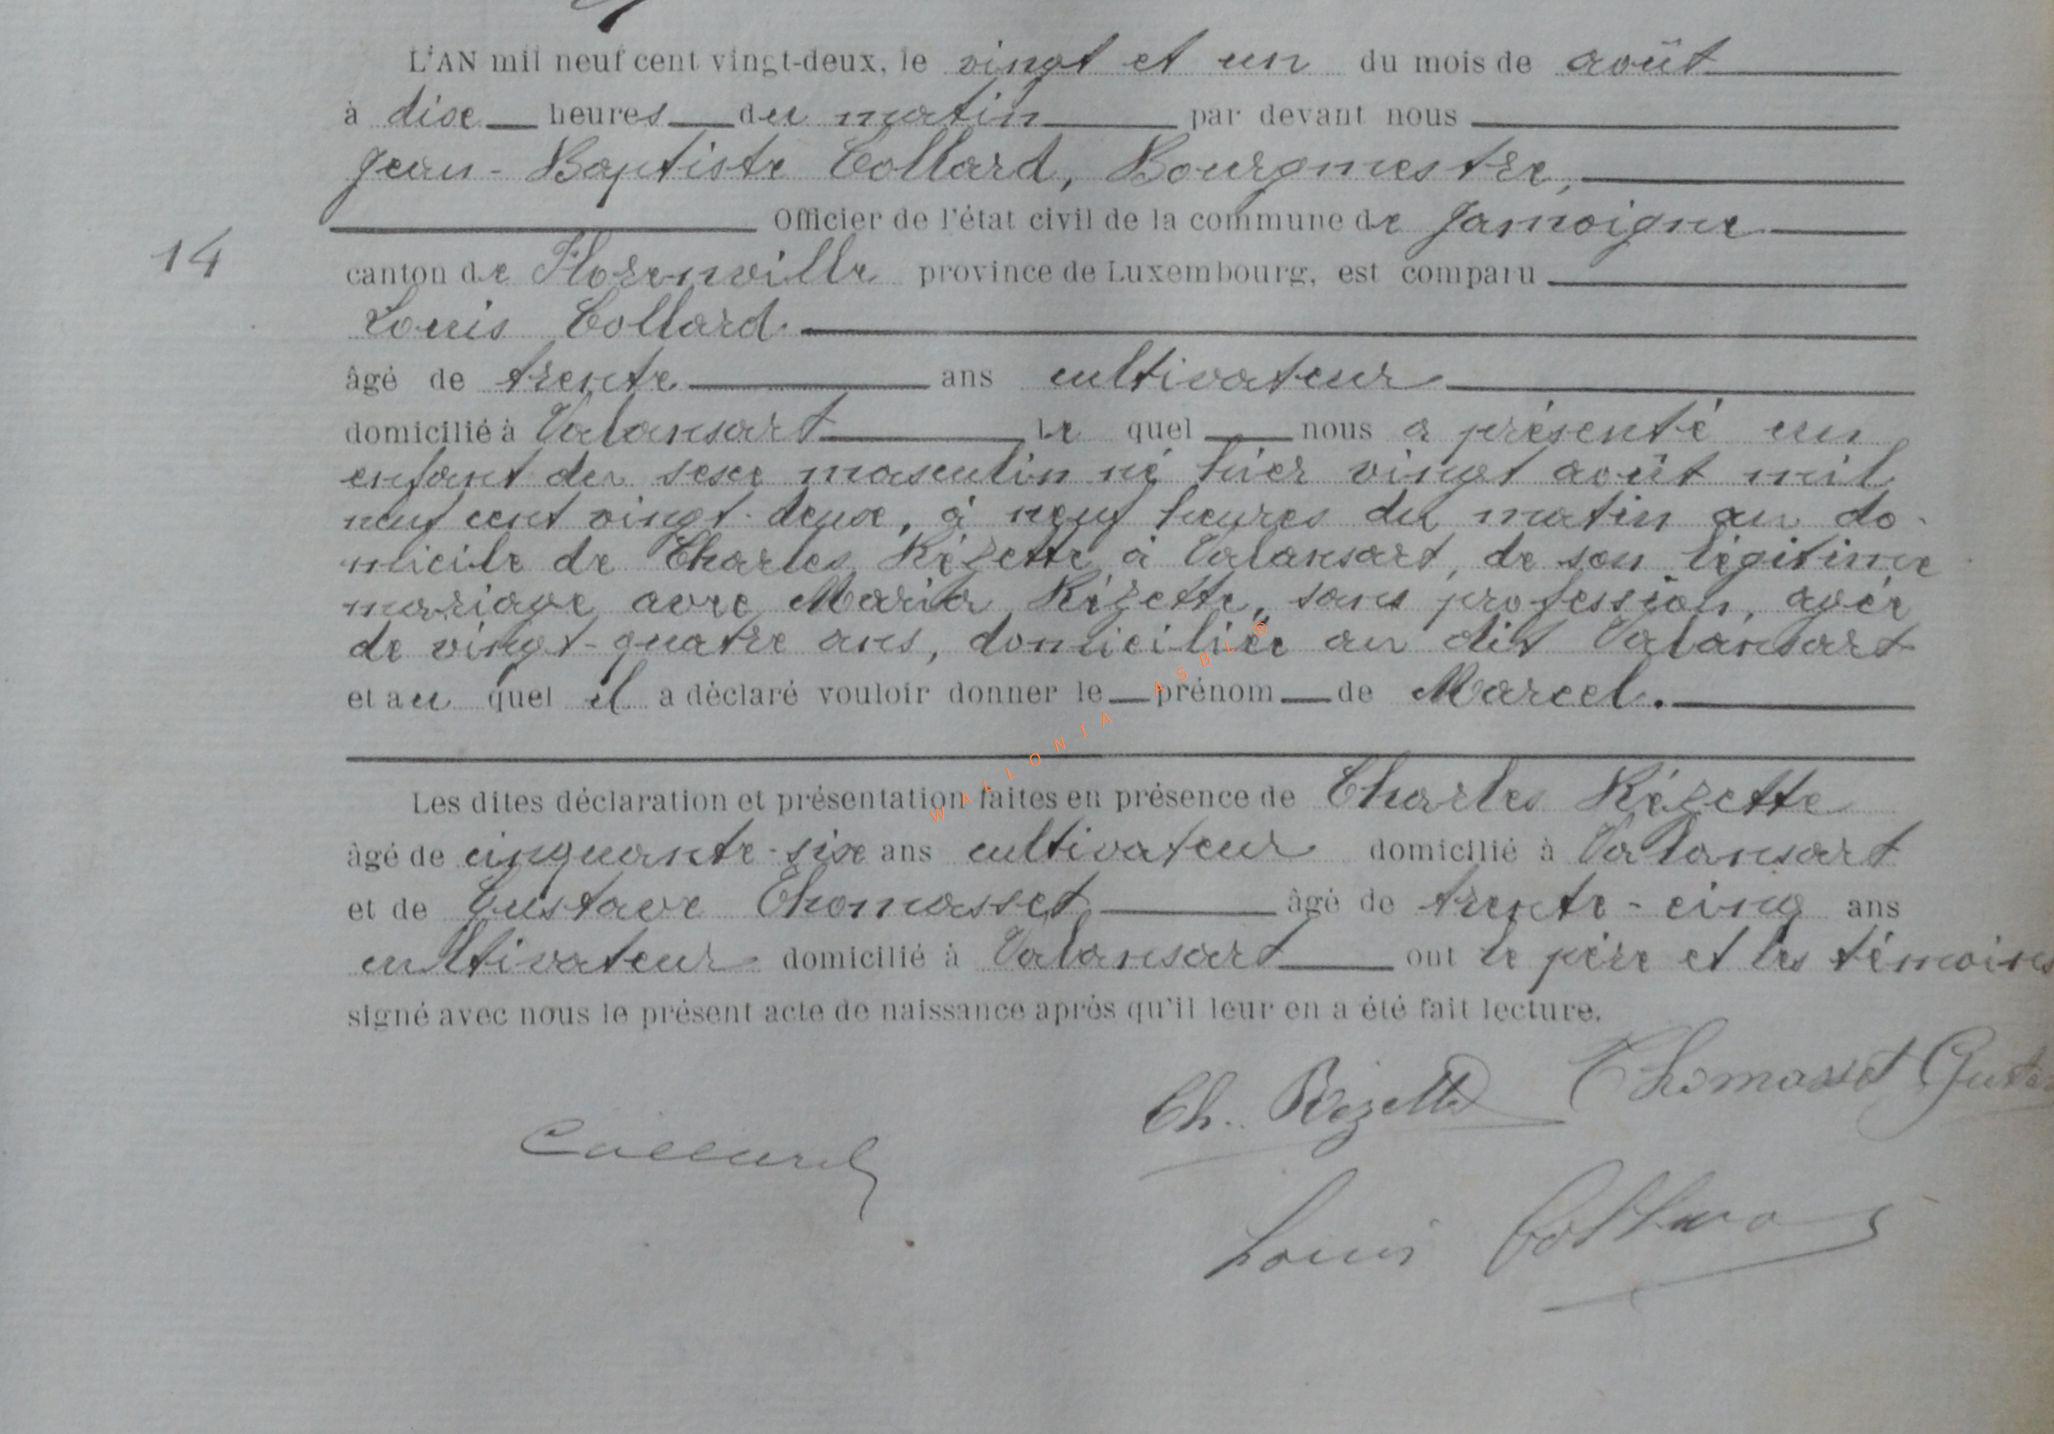 L'AN mil neuf cent vingt-deux, le vingt et un du mois de août
à dix heures du matin par devant nous
Jean-Baptiste Collard, Bourgmestre,
Officier de l'état civil de la commune de Jamoigne
14
canton de Florenville province de Luxembourg, est comparu
Louis Collard
âgé de trente ans cultivateur
domicilié à Valansart le quel nous a présenté un
enfant du sexe masculin né hier vingt août mil
neuf cent vingt-deux, à neuf heures du matin au do-
micile de Charles Rézette à Valansart, de son légitime
mariage avec Maria Rézette, sans profession, agée
de vingt-quatre ans, domiciliée au dit Valansart
et au quel il a déclaré vouloir donner le prénom de Marcel.
WALLONIA ASBL ©
Les dites déclaration et présentation faites en présence de Charles Rézette
âgé de cinquante-six ans cultivateur domicilié à Valansart
et de Gustave Thomasset âgé de trente-cinq ans
cultivateur domicilié à Valansart ont le père et les témoins
signé avec nous le présent acte de naissance après qu'il leur en a été fait lecture.
Ch. Rézette Thomasset
Collard
Louis Collard